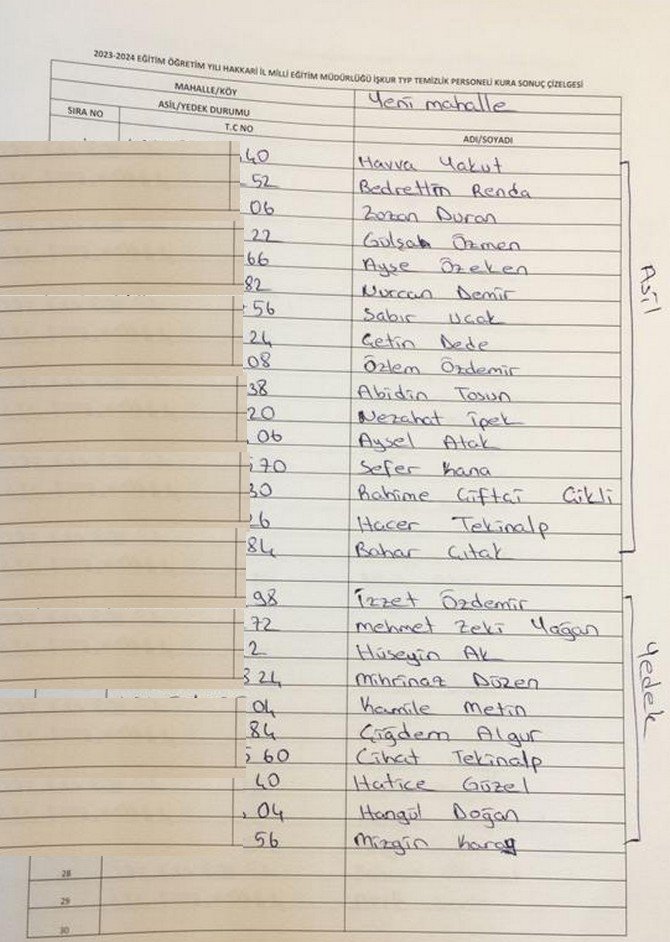 2023-2024 EĞİTİM ÖĞRETİM YILI HAKKARİ İL MİLLİ EĞİTİM MÜDÜRLÜĞÜ İŞKUR TYP TEMİZLİK PERSONELİ KURA SONUÇ ÇİZELGESİ
MAHALLE/KÖY Yeni mahalle
ASİL/YEDEK DURUMU
SIRA NO T.C NO ADI/SOYADI
40 Havva Yakut
52 Bedrettin Renda
06 Zozan Duran
22 Gülşah Özmen
66 Ayşe Özeken
82 Nurcan Demir
56 Sabır Ucak
24 Çetin Dede
08 Özlem Özdemir
Asil
38 Abidin Tosun
20 Nezahat İpek
06 Aysel Atak
70 Sefer Kana
30 Rahime Çiftçi Çikli
26 Hacer Tekinalp
84 Bahar Çıtak
98 İzzet Özdemir
72 Mehmet Zeki Yağan
2 Hüseyin Ak
24 Mihrinaz Düzen
Yedek
04 Kamile Metin
84 Çiğdem Algur
60 Cihat Tekinalp
40 Hatice Güzel
04 Hangül Doğan
56 Mizgin
28
29
30